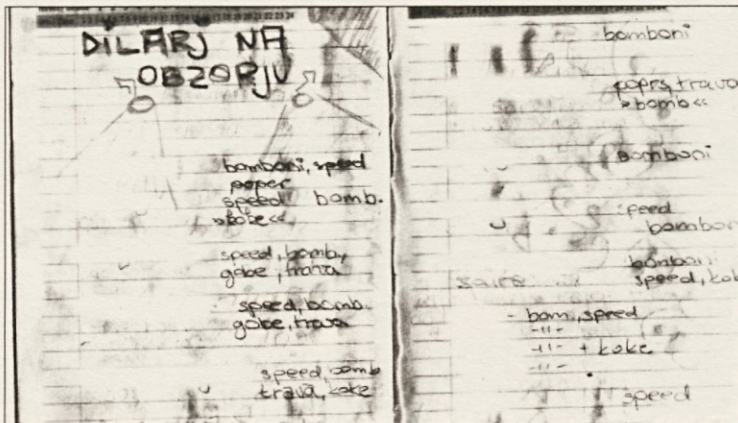 DILARJ NA
OBZORJU
bomboni, speed
poper
speed bomb.
»koke«
speed, bomb,
gobe, trava
speed, bomb.
gobe, trava
speed, bomb
trava, koke
bomboni
poprs, trava
»bomb«
bomboni
speed
bombon
bomboni
speed, kok
- bom., speed
-11-
-11- + koke
-11-
speed